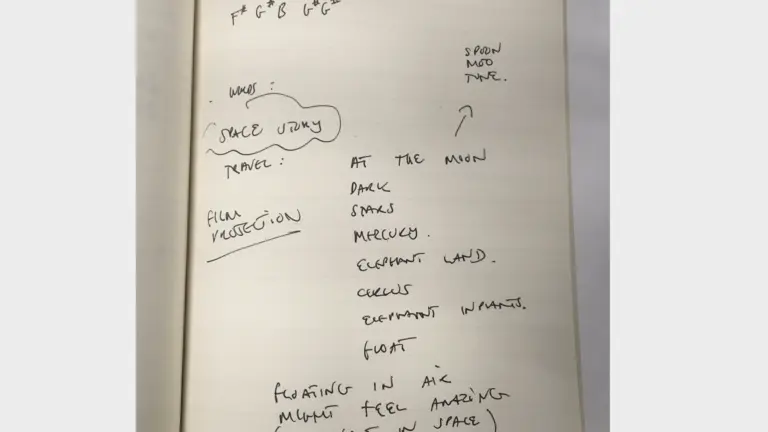 F# G# B G# G#
SPOON
MOO
TUNE.
WORDS:
SPACE STORY
TRAVEL:
AT THE MOON
DARK
STARS
MERCURY.
FILM
PROJECTION
ELEPHANT LAND.
CIRCUS
ELEPHANT INFANTS.
FLOAT
FLOATING IN AIR
MIGHT FEEL AMAZING
IN SPACE)